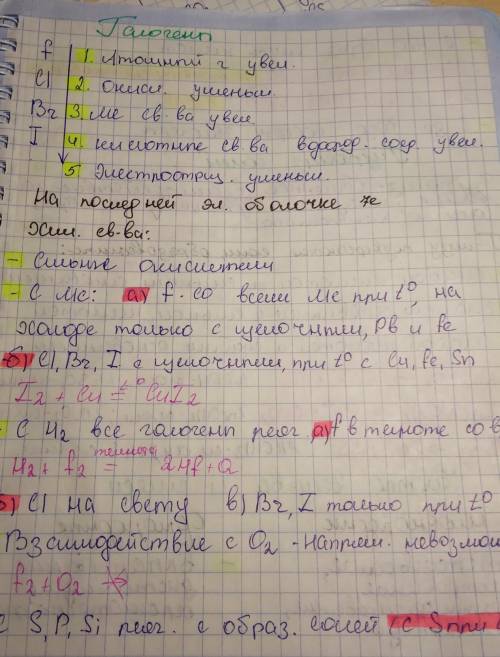 Галогены
F 1. Атомный r увел.
Cl 2. Окисл. уменьш.
Br 3. Ме св-ва увел.
I 4. кислотные св-ва водород. соед. увел.
5 Электроотриц. уменьш.
На последней эл. оболочке 7е
Хим. св-ва:
- Сильные окислители
- С Ме: а) F - со всеми Ме при t°, на
холоде только с щелочными, Pb и Fe
б) Cl, Br, I с щелочными, при t° с Cu, Fe, Sn
I2 + Cu =t° CuI2
- С H2 все галогены реаг. а) F в темноте со в
H2 + F2 =темнота 2HF + Q
б) Cl на свету в) Br, I только при t°
Взаимодействие с O2 - напрям. невозмо
F2 + O2 ↛
С S, P, Si реаг. с образ. солей (с S при